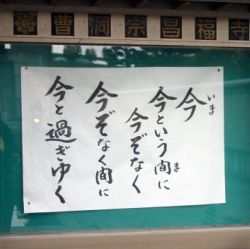 曹洞宗昌福寺
今
いま
今という間に
ま
今ぞなく
今ぞなく間に
今と過ぎゆく